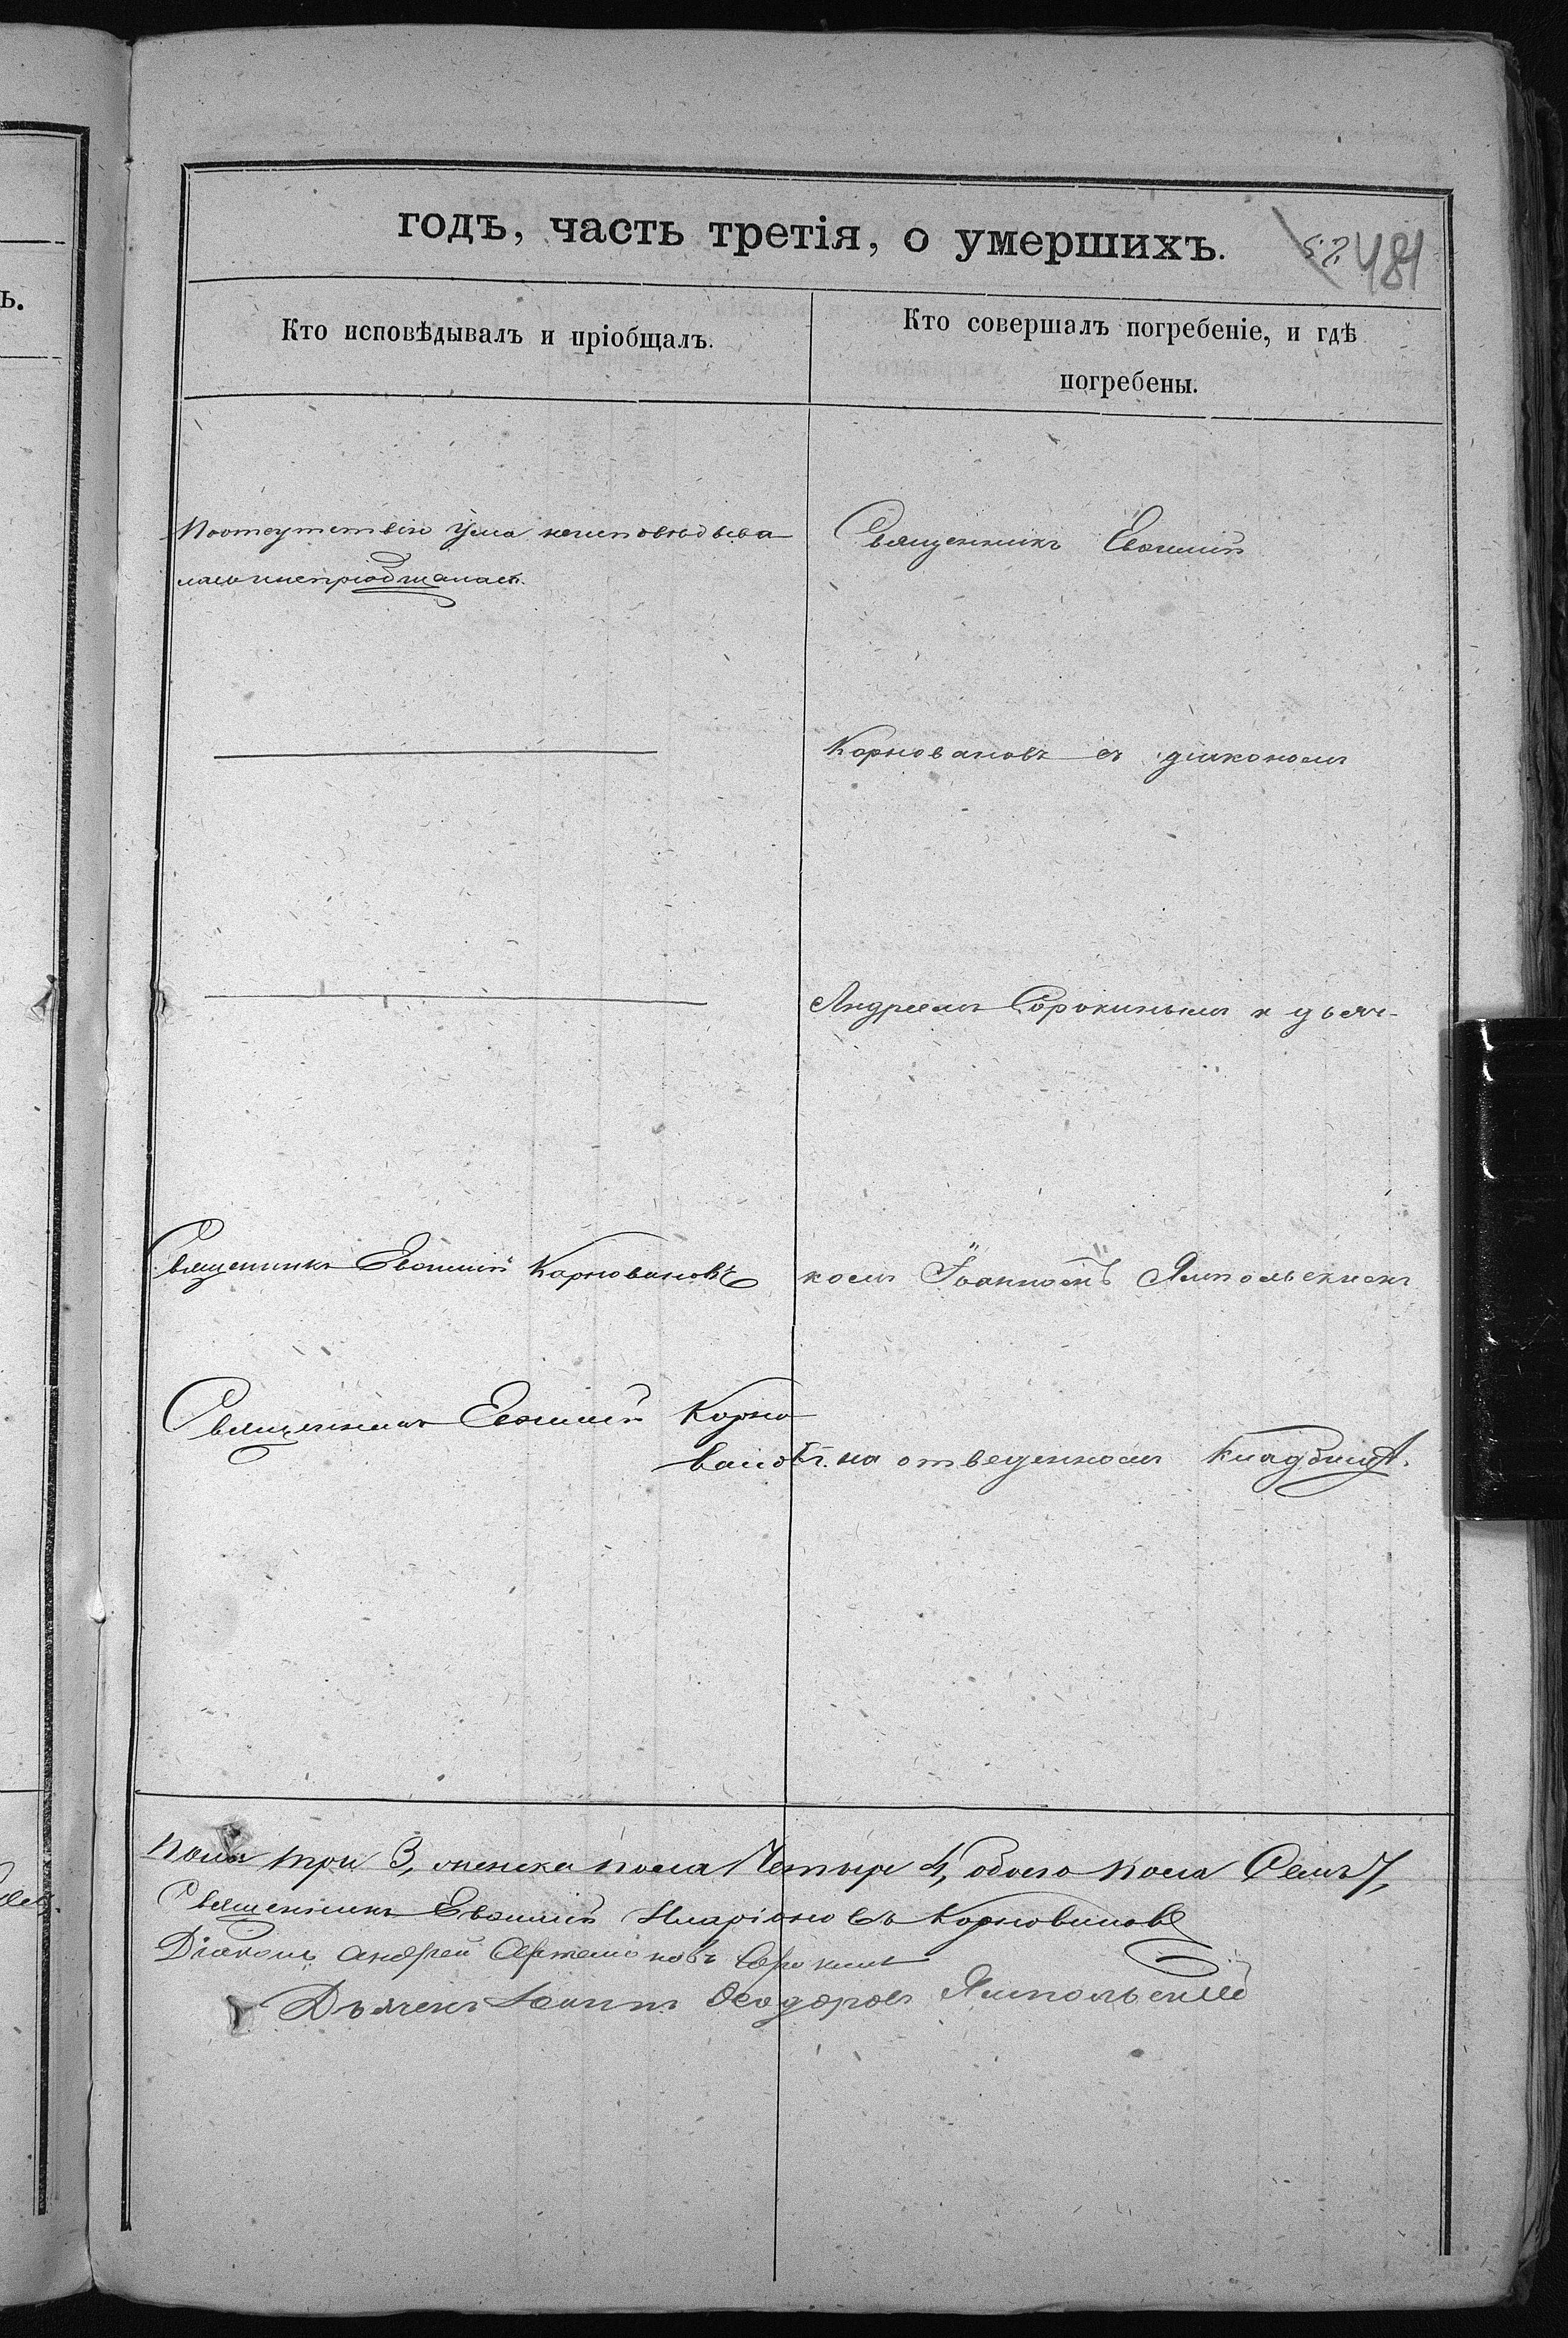 годъ, часть третія, о умершихъ.
481
Кто исповѣдывалъ и пріобщалъ.
Кто совершалъ погребеніе, и гдѣ
погребены.
Поотсутствiю ума неисповѣдыва
лась инепріобщалась.
Священникъ Евѳимій
Корновановъ съ діакономъ
Андреемъ Сорокинымъ и дьяч-
Священникъ Евѳимій Корновановъ
комъ Іоанномъ Ямпольскимъ
Священникъ Евѳимій Корно
вановъ.
на отведенномъ кладбищѣ.
пола три 3, женска пола Четыре 4, обоего пола Семь 7,
Священникъ Евѳимій Иларіоновъ Корновановъ
Діаконъ Андрей Артемоновъ Сорокинъ
Дьячекъ Іоаннъ Ѳеодоровъ Ямпольскій